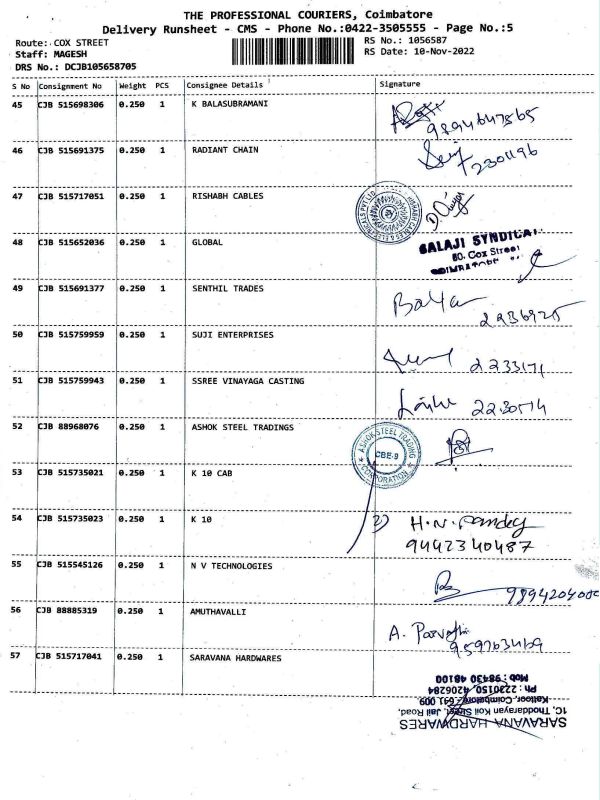 THE PROFESSIONAL COURIERS, Coimbatore
Delivery Runsheet - CMS - Phone No.:0422-3505555 - Page No.:5
Route: COX STREET
RS No.: 1056587
Staff: MAGESH
RS Date: 10-Nov-2022
DRS No.: DCJB105658705
S No Consignment No Weight PCS Consignee Details Signature
45 CJB 515698306 0.250 1 K BALASUBRAMANI
9894647865
46 CJB 515691375 0.250 1 RADIANT CHAIN
2301196
47 CJB 515717051 0.250 1 RISHABH CABLES
48 CJB 515652036 0.250 1 GLOBAL
BALAJI SYNDICA
80. Cox Street
49 CJB 515691377 0.250 1 SENTHIL TRADES
2236925
50 CJB 515759959 0.250 1 SUJI ENTERPRISES
2233171
51 CJB 515759943 0.250 1 SSREE VINAYAGA CASTING
52 CJB 88968076 0.250 1 ASHOK STEEL TRADINGS
ASHOK STEEL TRADING
CBE-9
CORPORATION
53 CJB 515735021 0.250 1 K 10 CAB
54 CJB 515735023 0.250 1 K 10
H.N. Pandey
9442340487
55 CJB 515545126 0.250 1 N V TECHNOLOGIES
56 CJB 88885319 0.250 1 AMUTHAVALLI
A. Parvathi
57 CJB 515717041 0.250 1 SARAVANA HARDWARES
SARAVANA HARDWARES
1C, Thoddarayan Koil Street, Jail Road,
Kattoor, Coimbatore - 641 009
Ph : 2230150, 4206284
Mob : 98430 48100